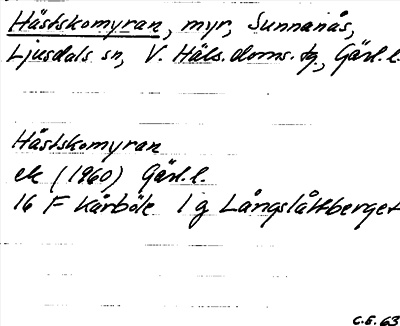 Hästskomyran, myr, Sunnanås,
Ljusdals sn, V. Häls. doms. tg, Gävl. l.
Hästskomyran
ek (1960) Gävl. l.
16 F Kårböle 1 g Långslåttberget
C.E. 63